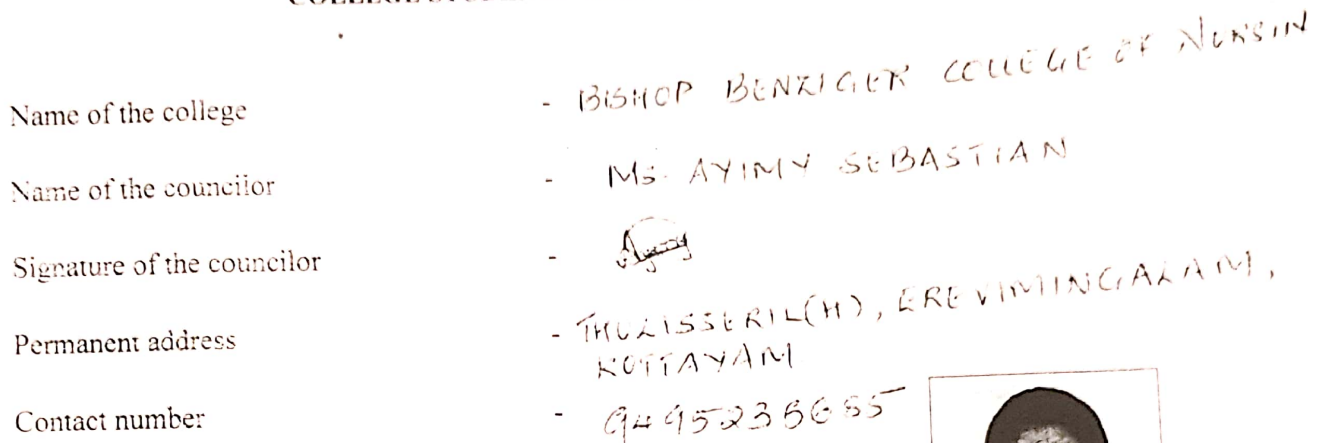 COLLEGE
Name of the college - BISHOP BENZIGER COLLEGE OF NURSIN
Name of the councilor - Ms. AYIMY SEBASTIAN
Signature of the councilor -
Permanent address - THULISSERIL(H), EREVIMINGALAM,
KOTTAYAM
Contact number -